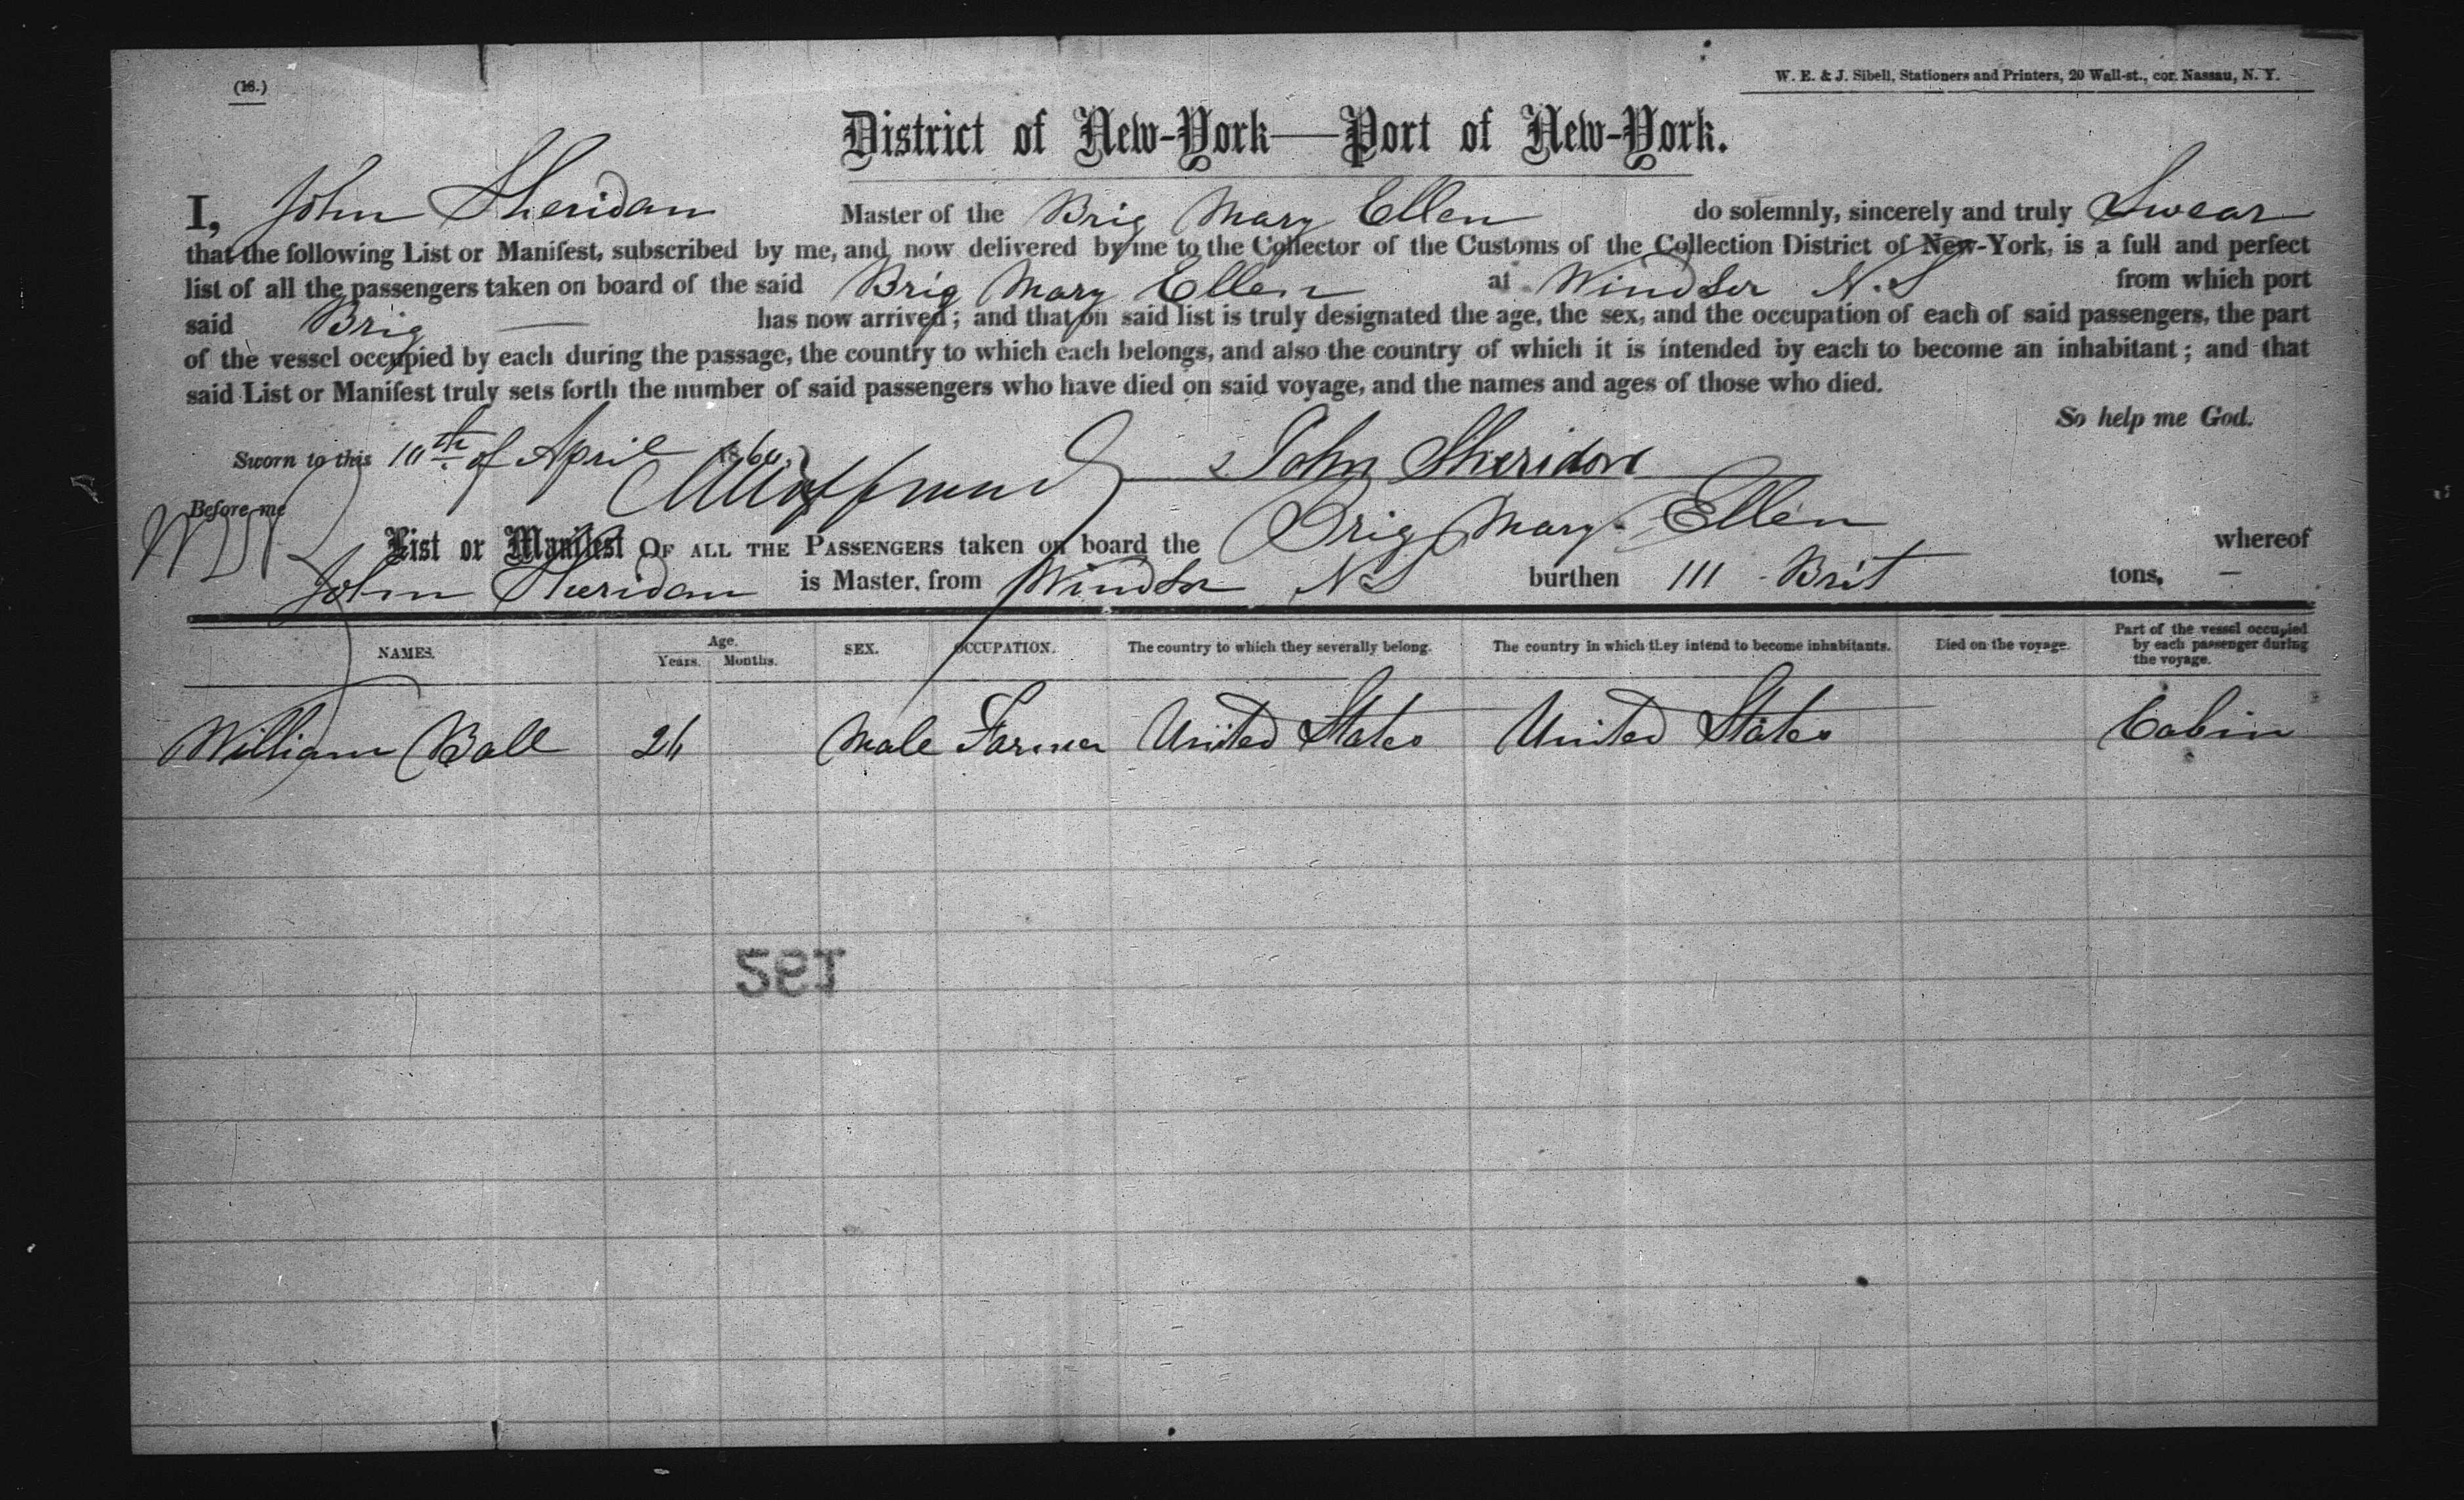 (18.)
W. E. & J. Sibell, Stationers and Printers, 20 Wall-st., cor. Nassau, N. Y.
District of New-York—Port of New-York.
I, John Sheridan Master of the Brig Mary Ellen do solemnly, sincerely and truly Swear
that the following List or Manifest, subscribed by me, and now delivered by me to the Collector of the Customs of the Collection District of New-York, is a full and perfect
list of all the passengers taken on board of the said Brig Mary Ellen at Windsor N.S from which port
said Brig — has now arrived; and that on said list is truly designated the age, the sex, and the occupation of each of said passengers, the part
of the vessel occupied by each during the passage, the country to which each belongs, and also the country of which it is intended by each to become an inhabitant; and that
said List or Manifest truly sets forth the number of said passengers who have died on said voyage, and the names and ages of those who died.
So help me God.
Sworn to this 10th of April 1860 John Sheridan
Before me
List or Manifest OF ALL THE PASSENGERS taken on board the Brig Mary Ellen whereof
John Sheridan is Master, from Windsor NS burthen 111 Brit tons, —
NAMES. Age. Years. Months. SEX. OCCUPATION. The country to which they severally belong. The country in which they intend to become inhabitants. Died on the voyage. Part of the vessel occupied by each passenger during the voyage.
William Ball Male Farmer United States United States Cabin